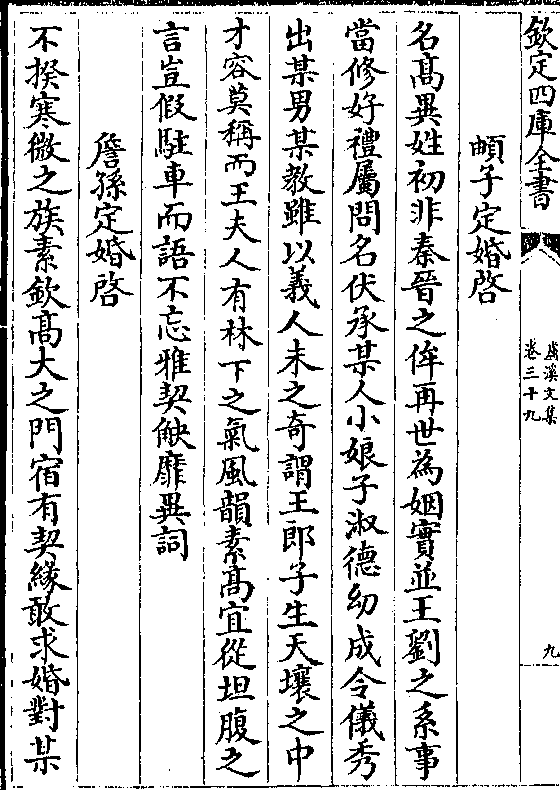 欽定四庫全書
盧溪文集
卷三十九
九
頔子定婚啓
名髙異姓初非秦晉之侔再世為姻實並王劉之系事
當修好禮屬問名伏承某人小娘子淑德幼成令儀秀
出某男某教雖以義人未之奇謂王郎子生天壤之中
才容莫稱而王夫人有林下之氣風韻素髙宜從坦腹之
言豈假駐車而語不忘雅契觖靡異詞
詹孫定婚啓
不揆寒微之族素欽髙大之門宿有契緣敢求婚對某